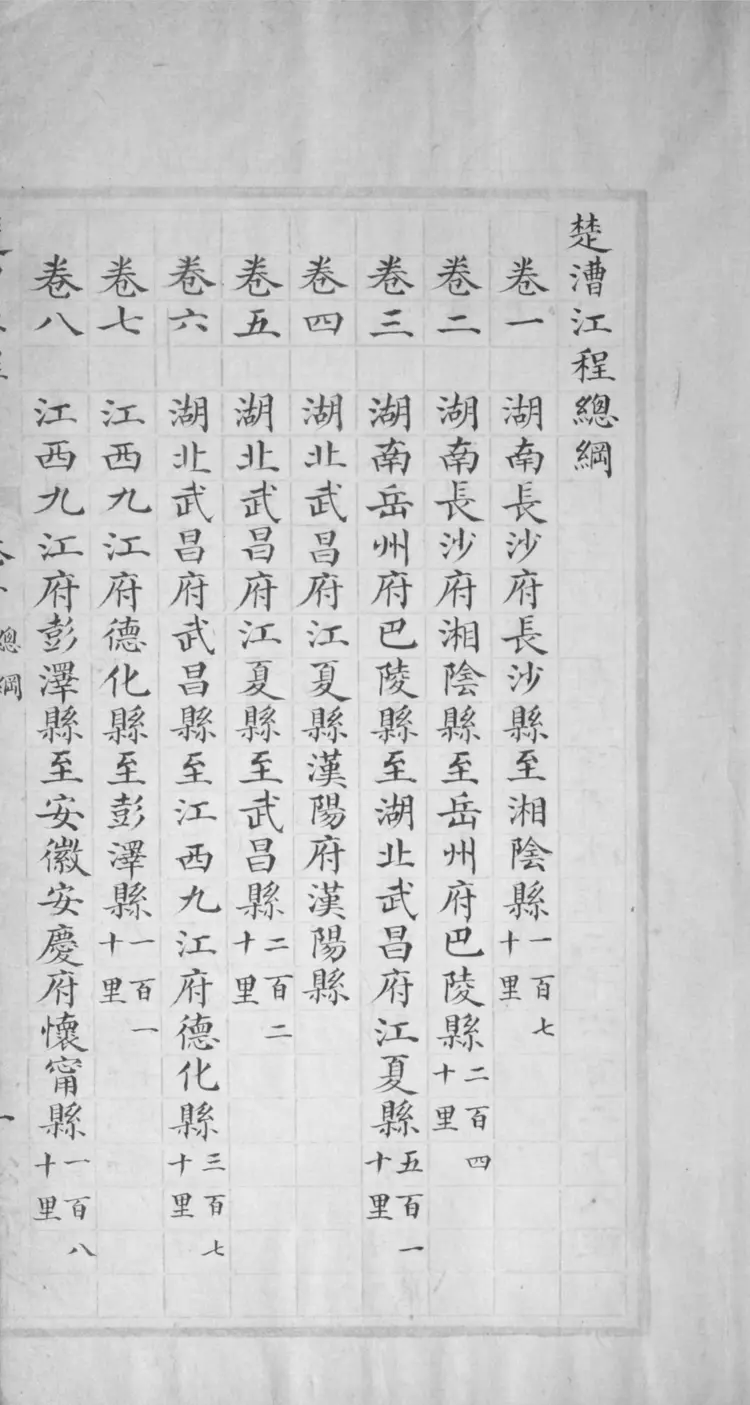 楚漕江程總綱
卷一 湖南長沙府長沙縣至湘陰縣一百七十里
卷二 湖南長沙府湘陰縣至岳州府巴陵縣二百四十里
卷三 湖南岳州府巴陵縣至湖北武昌府江夏縣五百一十里
卷四 湖北武昌府江夏縣漢陽府漢陽縣
卷五 湖北武昌府江夏縣至武昌縣二百二十里
卷六 湖北武昌府武昌縣至江西九江府德化縣三百七十里
卷七 江西九江府德化縣至彭澤縣一百一十里
卷八 江西九江府彭澤縣至安徽安慶府懷甯縣一百八十里
總綱 一